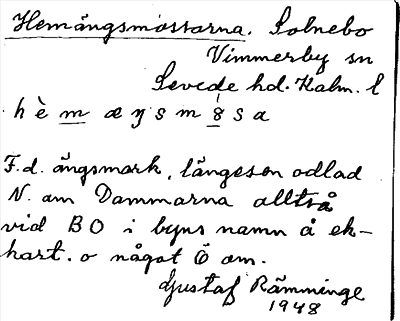 Hemängsmossarna. Solnebo
Vimmerby sn
Sevede hd. Kalm. l
hè m æŋ s m o s a
F.d. ängsmark, längesen odlad
N. om Dammarna alltså
vid BO i byns namn å ek-
kart. o något Ö om.
Gustaf Rämminge
1948